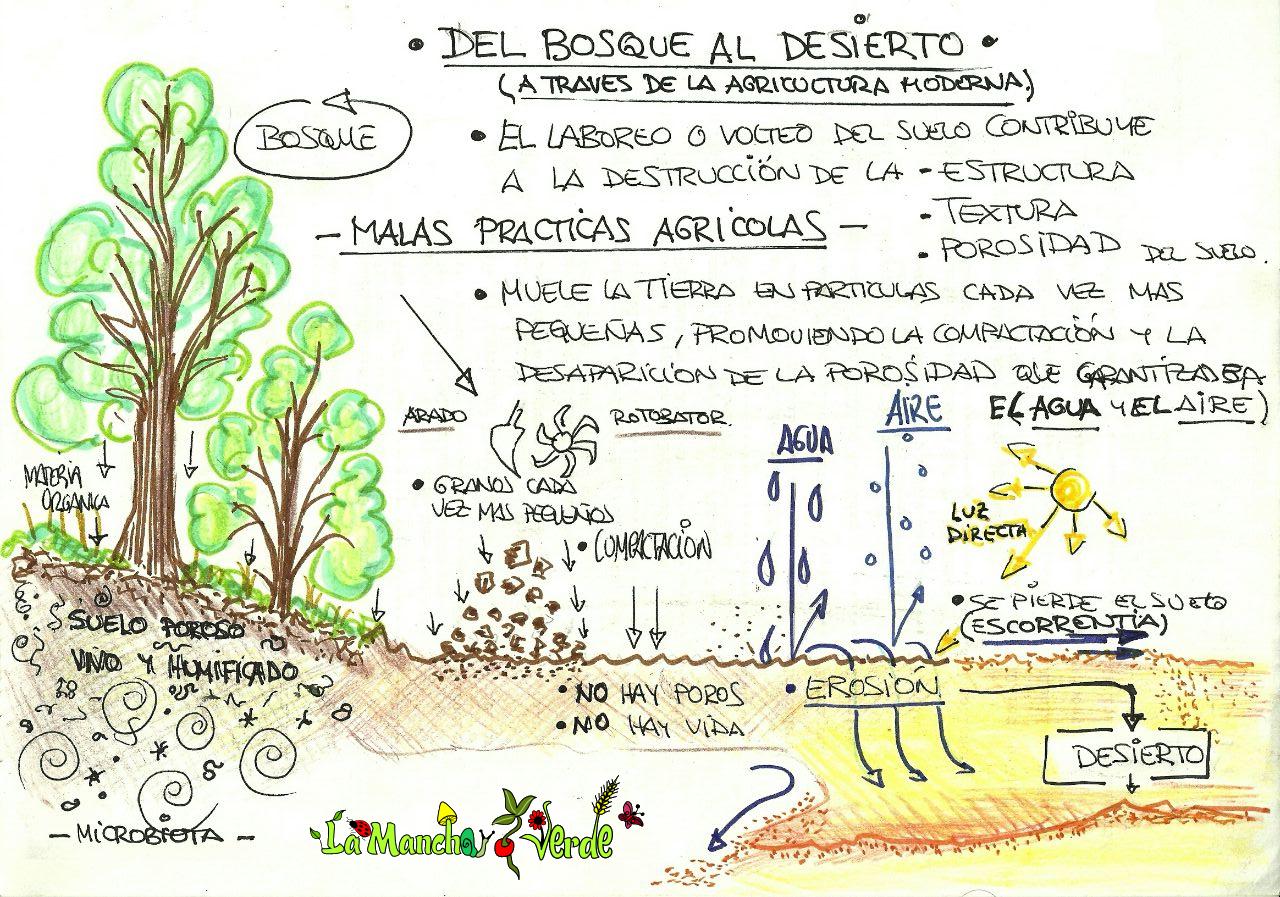 • DEL BOSQUE AL DESIERTO •
(A TRAVES DE LA AGRICULTURA MODERNA)
BOSQUE
• EL LABOREO O VOLTEO DEL SUELO CONTRIBUYE
A LA DESTRUCCIÓN DE LA - ESTRUCTURA
- TEXTURA
- POROSIDAD DEL SUELO.
- MALAS PRACTICAS AGRICOLAS -
• MUELE LA TIERRA EN PARTICULAS CADA VEZ MAS
PEQUEÑAS, PROMOVIENDO LA COMPACTACIÓN Y LA
DESAPARICION DE LA POROSIDAD QUE GARANTIZABA
EL AGUA Y EL AIRE)
ARADO
ROTOBATOR.
• GRANOS CADA
VEZ MAS PEQUEÑOS
• COMPACTACIÓN
AGUA
AIRE
LUZ
DIRECTA
MATERIA
ORGANICA
• SE PIERDE EL SUELO
(ESCORRENTIA)
SUELO POROSO
VIVO Y HUMIFICADO
• NO HAY POROS
• NO HAY VIDA
• EROSIÓN
DESIERTO
- MICROBIOTA -
La Mancha Verde